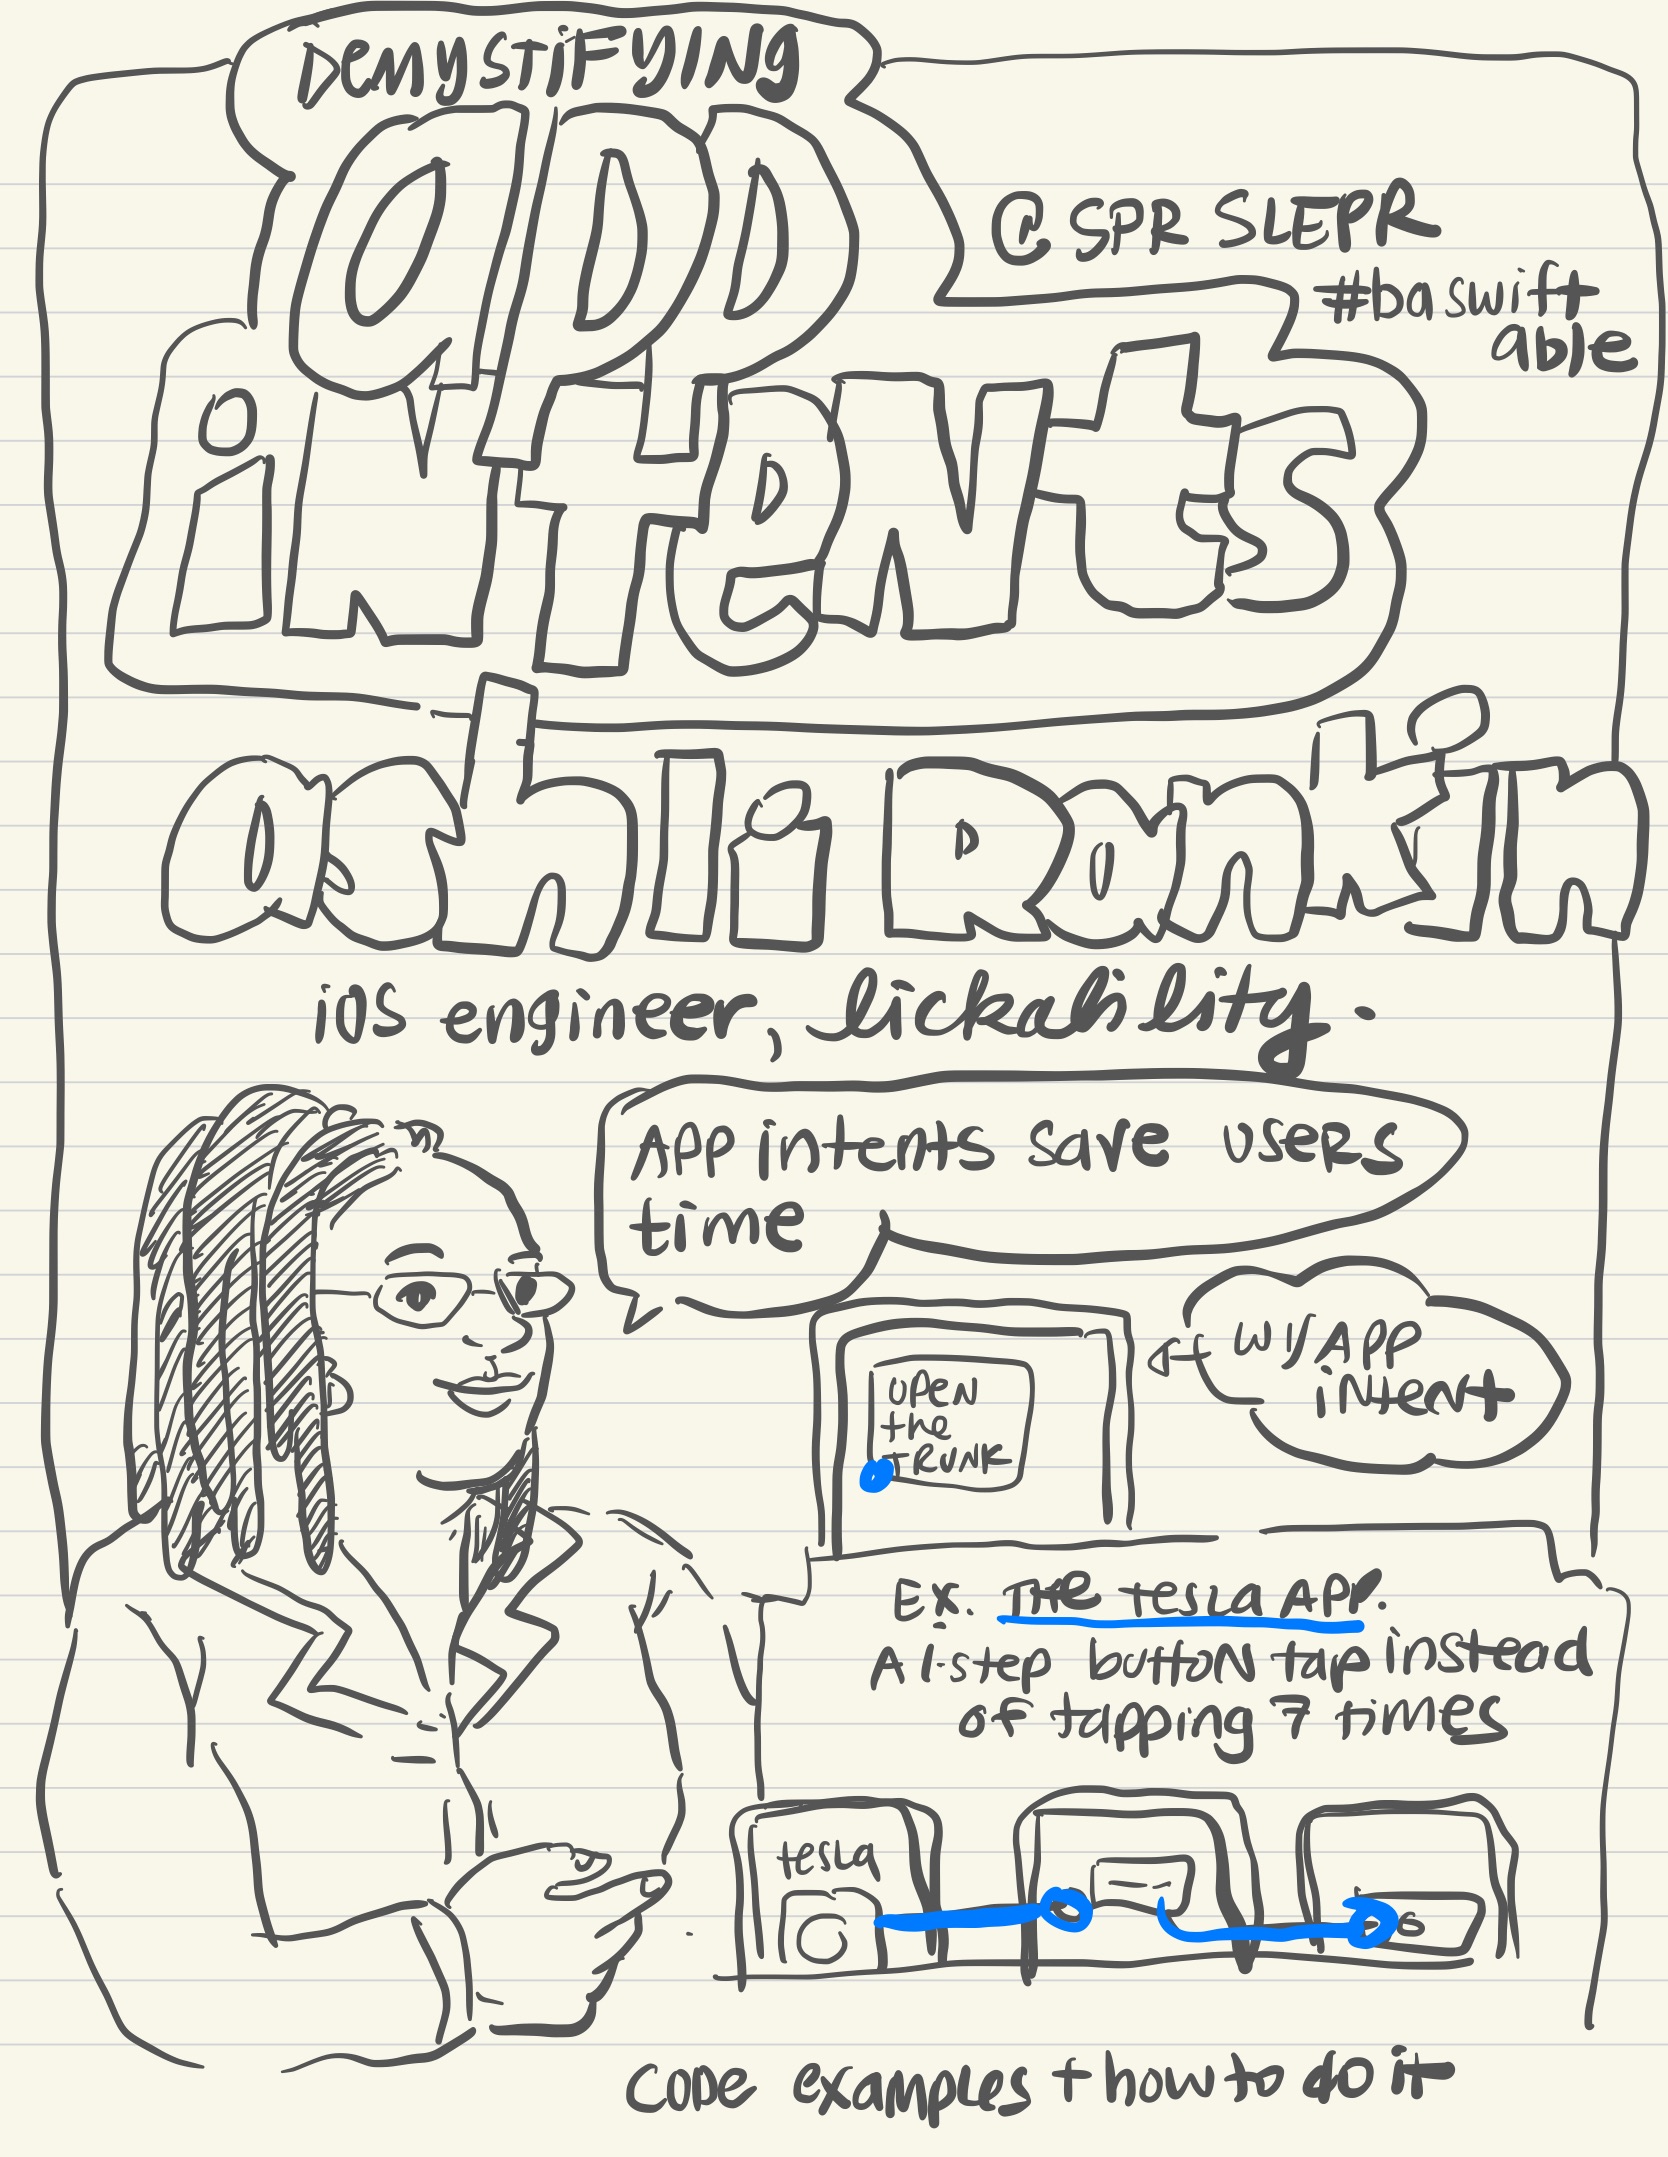 DEMYSTiFYING
aPP
iNteNts
@SPR SLEPR
#baswift
able
ashli Rankin
iOS engineer, lickability.
APP intents save users
time
W/APP
intent
OPEN
the
tRUNK
EX. The tesla APP.
A 1-step button tap instead
of tapping 7 times
tesla
CODE examples + how to do it